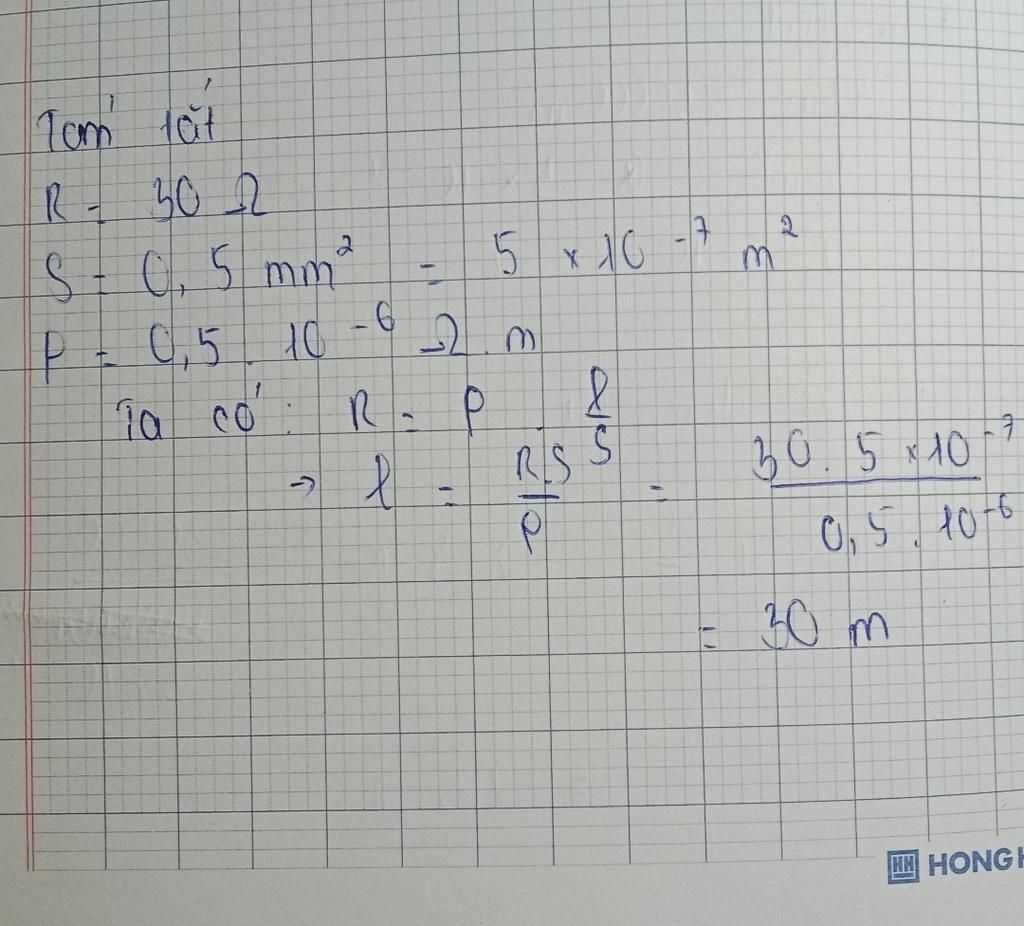 Tóm tắt
R = 30 Ω
S = 0,5 mm² = 5 × 10⁻⁷ m²
ρ = 0,5 . 10⁻⁶ Ω . m
Ta có : R = ρ . l/S
→ l = R.S/ρ = 30 . 5 × 10⁻⁷ / 0,5 . 10⁻⁶
= 30 m
HH HONG H